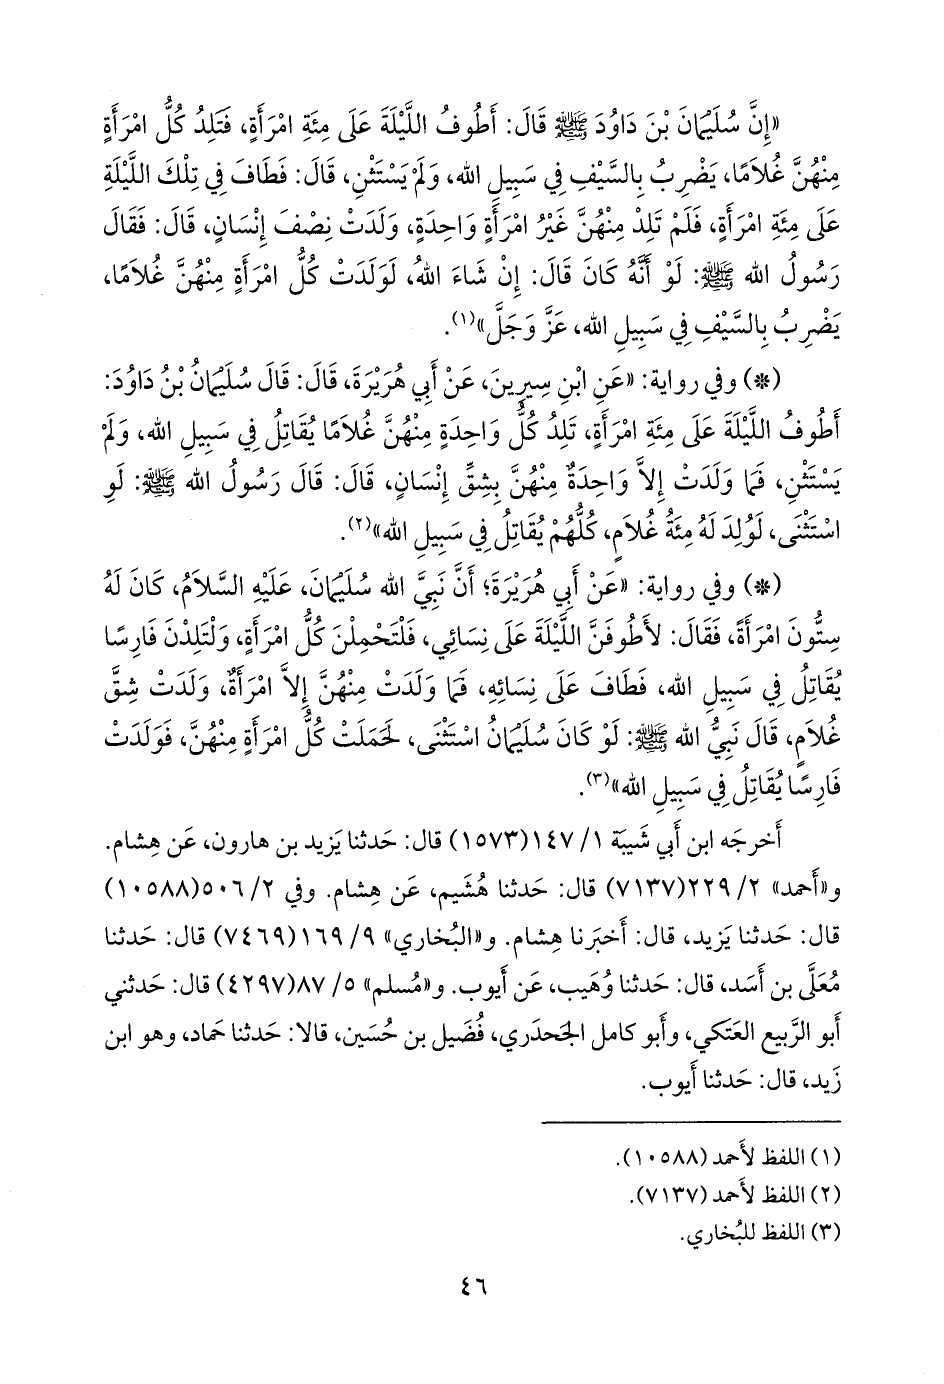 «إِنَّ سُلَيْمَانَ بْنَ دَاوُدَ ﷺ قَالَ: أَطُوفُ اللَّيْلَةَ عَلَى مِئَةِ امْرَأَةٍ، فَتَلِدُ كُلُّ امْرَأَةٍ
مِنْهُنَّ غُلاَمًا، يَضْرِبُ بِالسَّيْفِ فِي سَبِيلِ الله، وَلَمْ يَسْتَثْنِ، قَالَ: فَطَافَ فِي تِلْكَ اللَّيْلَةِ
عَلَى مِئَةِ امْرَأَةٍ، فَلَمْ تَلِدْ مِنْهُنَّ غَيْرُ امْرَأَةٍ وَاحِدَةٍ، وَلَدَتْ نِصْفَ إِنْسَانٍ، قَالَ: فَقَالَ
رَسُولُ الله ﷺ: لَوْ أَنَّهُ كَانَ قَالَ: إِنْ شَاءَ اللهُ، لَوَلَدَتْ كُلُّ امْرَأَةٍ مِنْهُنَّ غُلاَمًا،
يَضْرِبُ بِالسَّيْفِ فِي سَبِيلِ الله، عَزَّ وَجَلَّ»(١).
(*) وفي رواية: «عَنِ ابْنِ سِيرِينَ، عَنْ أَبِي هُرَيْرَةَ، قَالَ: قَالَ سُلَيْمَانُ بْنُ دَاوُدَ:
أَطُوفُ اللَّيْلَةَ عَلَى مِئَةِ امْرَأَةٍ، تَلِدُ كُلُّ وَاحِدَةٍ مِنْهُنَّ غُلاَمًا يُقَاتِلُ فِي سَبِيلِ الله، وَلَمْ
يَسْتَثْنِ، فَمَا وَلَدَتْ إِلاَّ وَاحِدَةٌ مِنْهُنَّ بِشِقِّ إِنْسَانٍ، قَالَ: قَالَ رَسُولُ الله ﷺ: لَوِ
اسْتَثْنَى، لَوُلِدَ لَهُ مِئَةُ غُلاَمٍ، كُلُّهُمْ يُقَاتِلُ فِي سَبِيلِ الله»(٢).
(*) وفي رواية: «عَنْ أَبِي هُرَيْرَةَ؛ أَنَّ نَبِيَّ الله سُلَيْمَانَ، عَلَيْهِ السَّلاَمُ، كَانَ لَهُ
سِتُّونَ امْرَأَةً، فَقَالَ: لأَطُوفَنَّ اللَّيْلَةَ عَلَى نِسَائِي، فَلْتَحْمِلْنَ كُلُّ امْرَأَةٍ، وَلْتَلِدْنَ فَارِسًا
يُقَاتِلُ فِي سَبِيلِ الله، فَطَافَ عَلَى نِسَائِهِ، فَمَا وَلَدَتْ مِنْهُنَّ إِلاَّ امْرَأَةٌ، وَلَدَتْ شِقَّ
غُلاَمٍ، قَالَ نَبِيُّ الله ﷺ: لَوْ كَانَ سُلَيْمَانُ اسْتَثْنَى، لَحَمَلَتْ كُلُّ امْرَأَةٍ مِنْهُنَّ، فَوَلَدَتْ
فَارِسًا يُقَاتِلُ فِي سَبِيلِ الله»(٣).
أَخرجَه ابن أَبي شَيبَة ١/ ١٤٧(١٥٧٣) قال: حَدثنا يَزيد بن هارون، عَن هِشام.
و«أَحمد» ٢/ ٢٢٩(٧١٣٧) قال: حَدثنا هُشَيم، عَن هِشام. وفي ٢/ ٥٠٦(١٠٥٨٨)
قال: حَدثنا يَزيد، قال: أَخبَرنا هِشام. و«البُخاري» ٩/ ١٦٩(٧٤٦٩) قال: حَدثنا
مُعَلَّى بن أَسَد، قال: حَدثنا وُهَيب، عَن أَيوب. و«مُسلم» ٥/ ٨٧(٤٢٩٧) قال: حَدثني
أَبو الرَّبيع العَتَكي، وأَبو كامل الجَحدَري، فُضَيل بن حُسَين، قالا: حَدثنا حَماد، وهو ابن
زَيد، قال: حَدثنا أَيوب.
(١) اللفظ لأَحمد (١٠٥٨٨).
(٢) اللفظ لأَحمد (٧١٣٧).
(٣) اللفظ للبُخاري.
٤٦